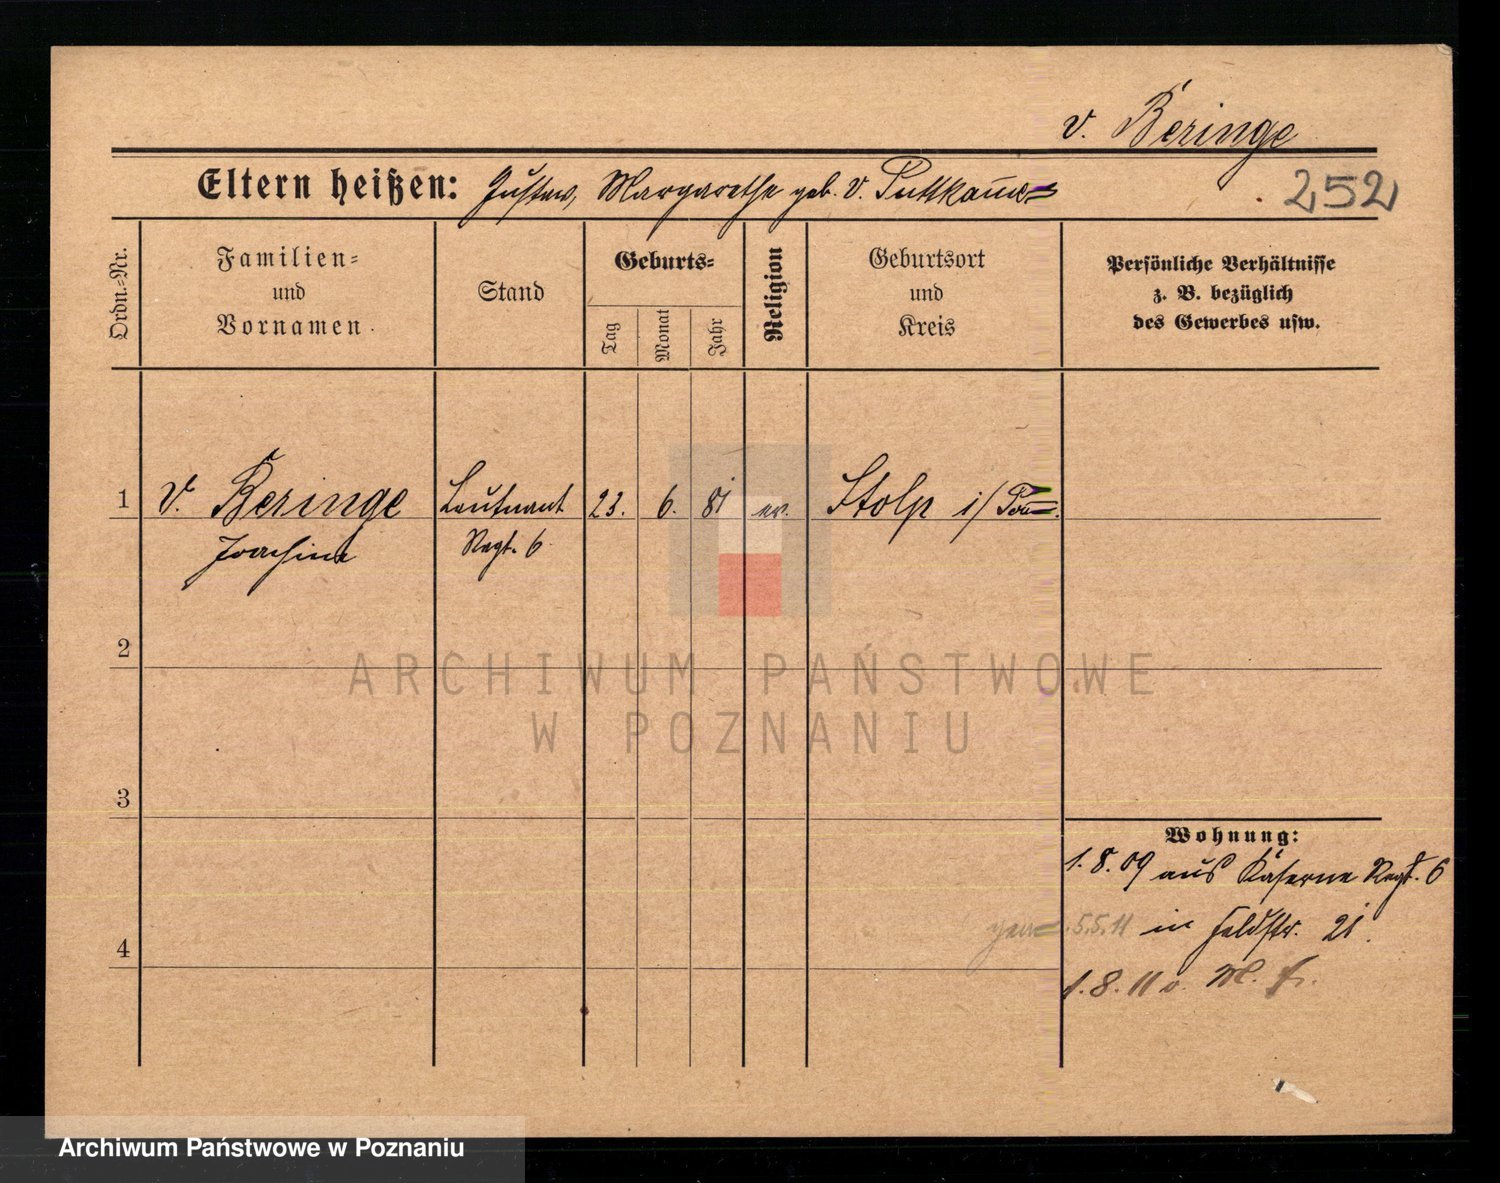 v. Beringe
Eltern heißen: Gustav, Margarethe geb. v. Puttkamer
252
Ordn.-Nr.
Familien-
und
Vornamen.
Stand
Geburts-
Tag
Monat
Jahr
Religion
Geburtsort
und
Kreis
Persönliche Verhältnisse
z. B. bezüglich
des Gewerbes usw.
1 v. Beringe Leutnant 23. 6. 81 ev. Stolp i/ Pom.
Joachim Regt. 6
2
ARCHIWUM PAŃSTWOWE
W POZNANIU
3
Wohnung:
1. 8. 09 aus Kaserne Regt. 6
5.5.11 in Feldstr. 21.
4
1. 8. 11 v. M.
Archiwum Państwowe w Poznaniu